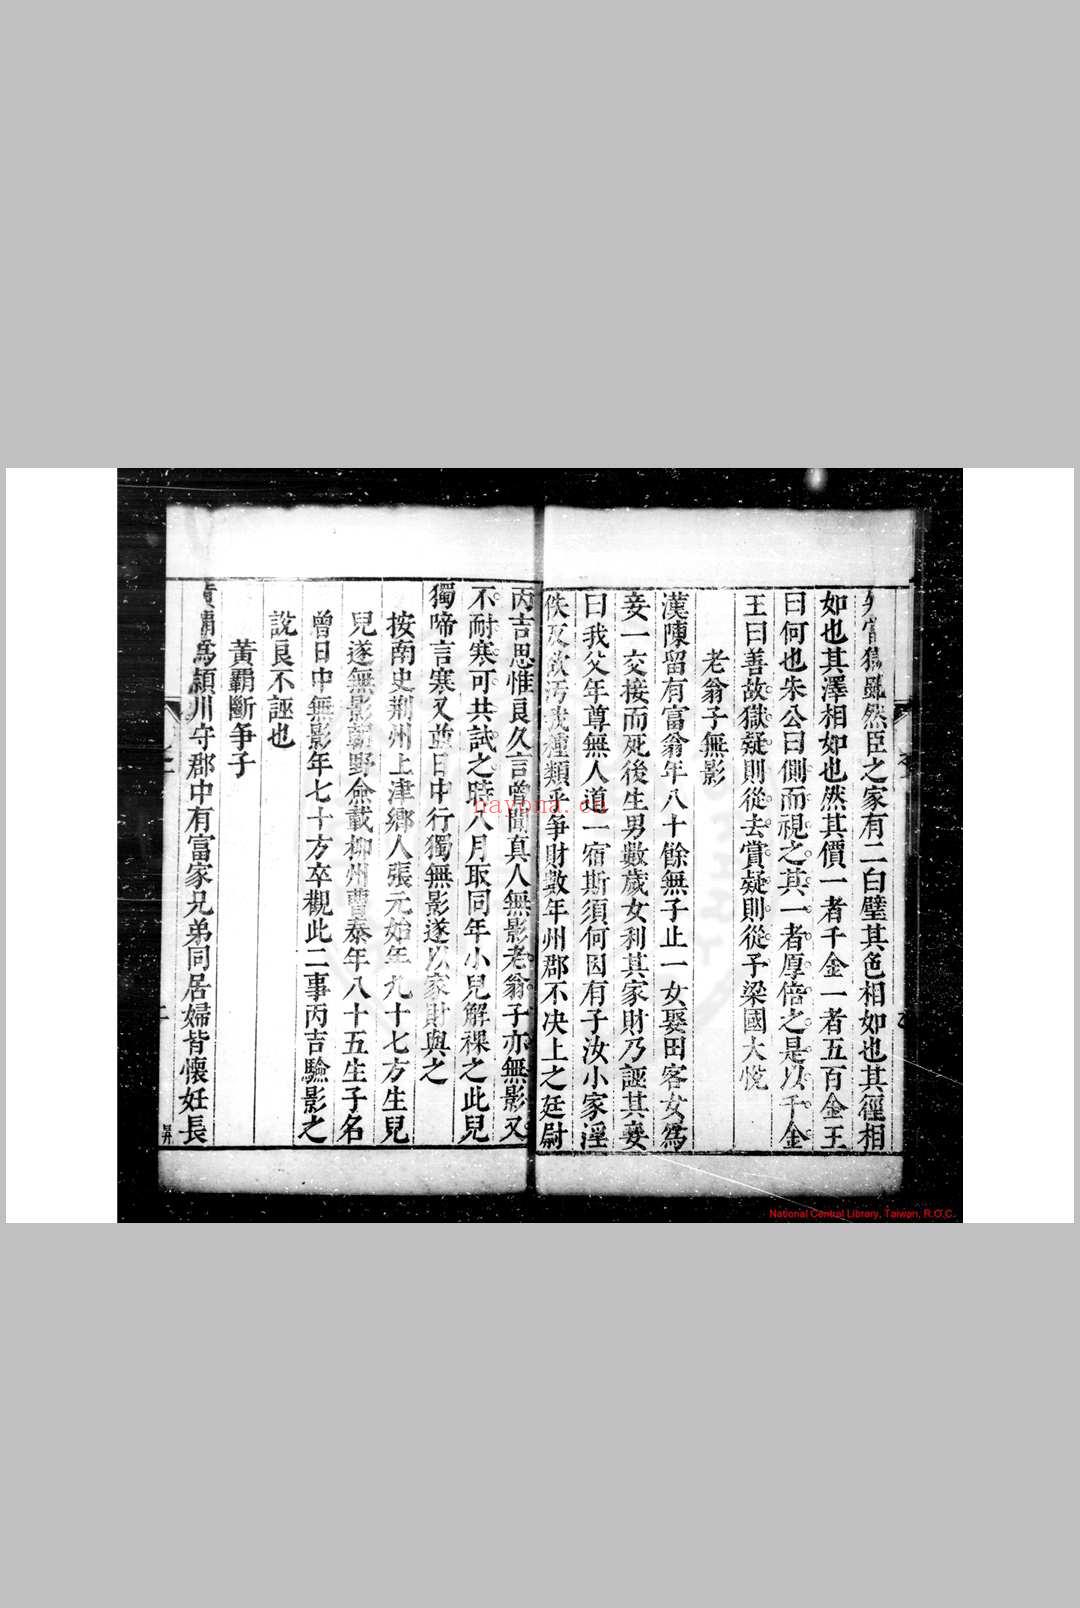 當獄雖然臣之家有二白璧其色相如也其徑相
如也其澤相如也然其價一者千金一者五百金王
曰何也朱公曰側而視之其一者厚倍之是以千金
王曰善故獄疑則從去賞疑則從予梁國大悅
老翁子無影
漢陳留有富翁年八十餘無子止一女娶田客女爲
妾一交接而死後生男數歲女利其家財乃誣其妾
曰我父年尊無人道一宿斯須何因有子汝小家淫
佚反欲汚我種類乎爭財數年州郡不決上之廷尉
丙吉思惟良久言曾聞真人無影老翁子亦無影又
不耐寒可共試之時八月取同年小兒解裸之此兒
獨啼言寒又並日中行獨無影遂以家財與之
按南史荆州上津鄉人張元始年九十七方生兒
兒遂無影朝野僉載柳州曹泰年八十五生子名
曾日中無影年七十方卒觀此二事丙吉驗影之
說良不誣也
黃霸斷爭子
黃霸爲潁川守郡中有富家兄弟同居婦皆懷妊長
nayona.cn
National Central Library, Taiwan, R.O.C.